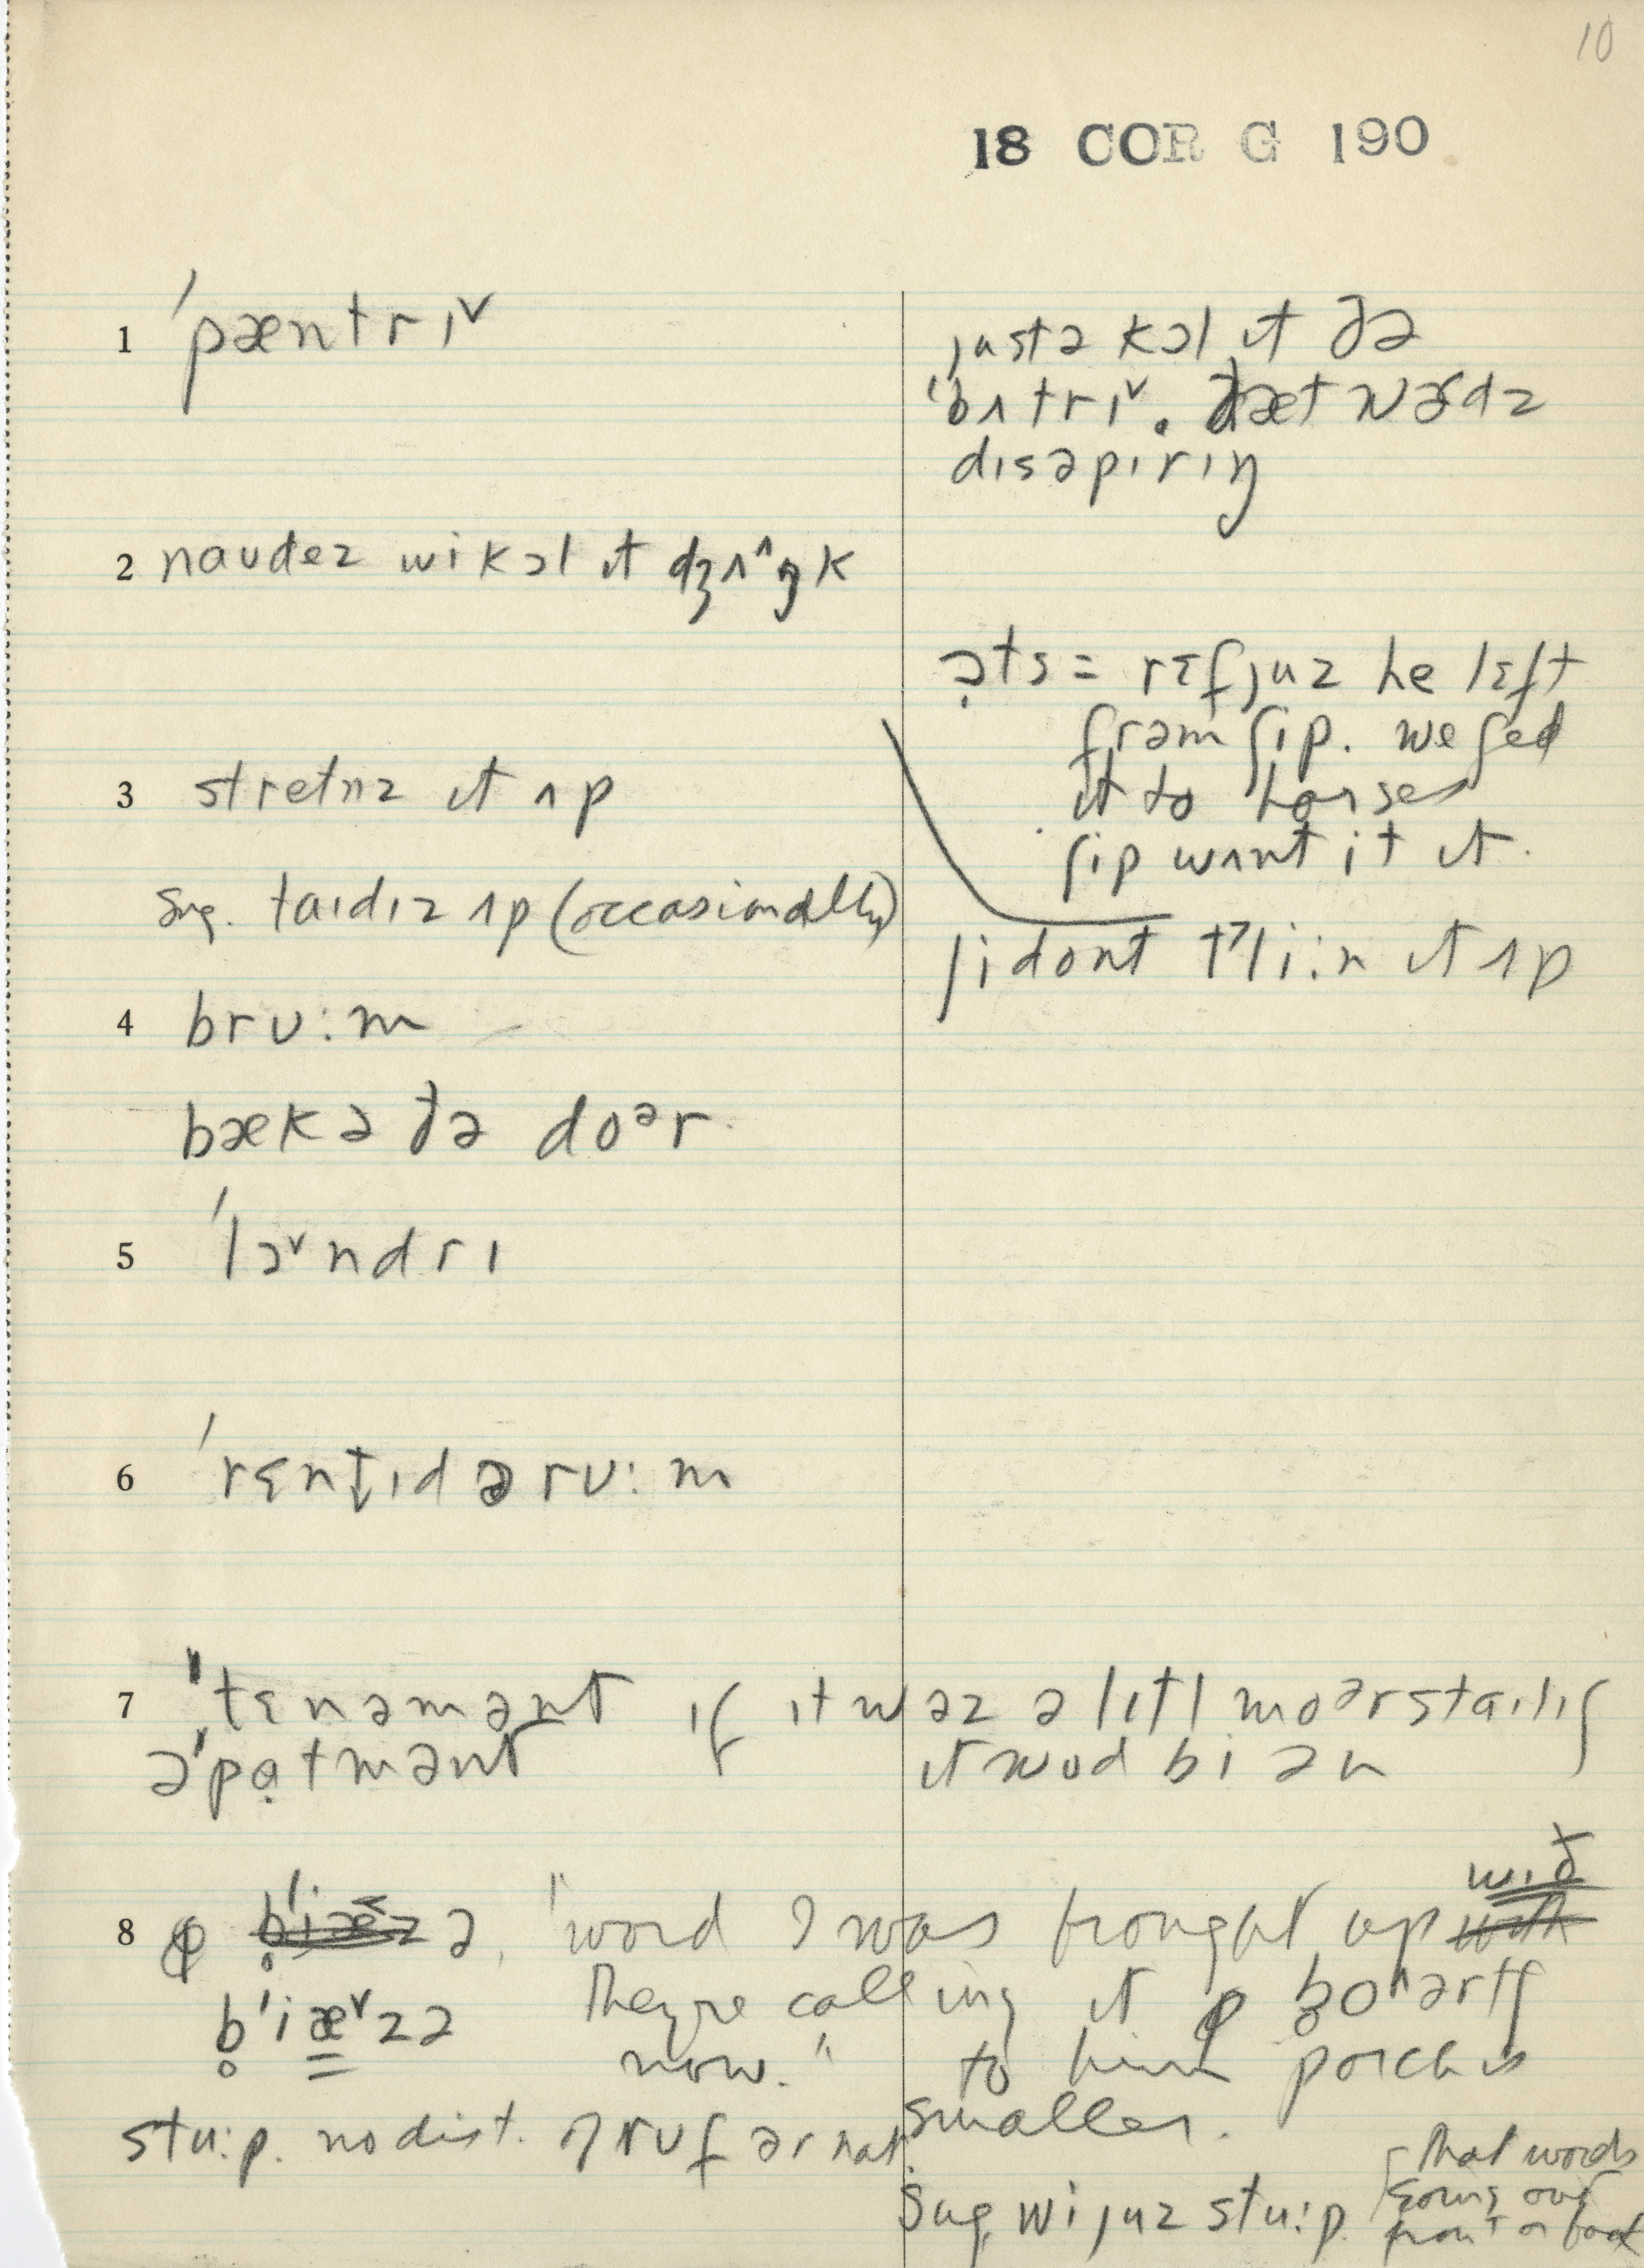 10
18 COR G 190
1 ˈpæntrɪ˅
justə kɔl ɪt ðə
ˈbʌtrɪ˅. ðæt wɝdz
dɪsəpɪrɪŋ
2 naudez wi kɔl ɪt dʒʌ^ŋk
ɔts = rɛfjuz he left
fram ʃip. we fed
it to horses
ʃip want it ɪt.
3 stretnz ɪt ʌp
sug. taɪdɪz ʌp (occasionally)
ʃi dont kli:n ɪt ʌp
4 brʊ:m
bækə ðə doᵊr
5 ˈlɔ˅ndrɪ
6 ˈrɛntɪd ə rʊ:m
7 ˈtɛnəmənt ɪf ɪt wəz ə lɪtl moᵊr staɪlɪʃ
əˈpɑtmənt ɪt wʊd bi ən
8 ə, "word I was brought up wɪð
b̥ˈiæ˅zə they're calling it b̥o^ərtʃ
now." to him porch is
smaller.
stu:p. no dist. ɪf rʊf ər nat.
sug. wi juz stu:p. that words
going out
front or back